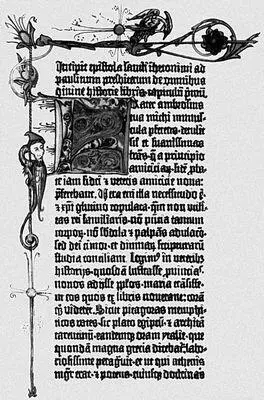 Incipit epistola sancti iheronimi ad
paulinum presbiterum de omnibus
divine historie libris. capitulũ primũ.
Frater ambrosius
tua michi munus-
cula perferens. detulit
sil et suavissimas
lr̃as. q̃ a principio
amiciciarũ. fidẽ pba-
te iam fidei et veteris amicicie nova:
pferebant. Vera eni illa necessitudo ẽ.
et xpi glutino copulata. qm̃ non vtili-
tas rei familiaris. nõ presẽtia tantum
corporũ. nõ sbdola et palpãs adulacõ.
sed dei timor. et divinarũ scripturarũ
studia conciliant. Legim9 in veterib9
historijs. quosdã lustrasse puincias.
novos adisse pplos. maria trãsisse.
ut eos quos ex libris noverant: corã
q̃ viderẽt. Sicut pitagoras memphi-
ticos vates. sic plato egiptũ. et architã
tarentinũ. eandemq̃ oram ytalie. que
quondã magna grecia dicebat̃: labo-
riosissime peragravit. et ut qui athenis
mgr̃ erat. et potens. cuiusq̃ doctrinas